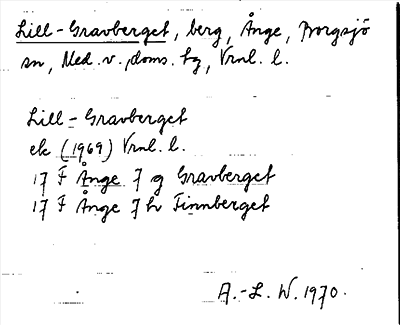 Lill-Gravberget, berg, Ånge, Borgsjö
sn, Med. v., doms. tg, Vrnl. l.
Lill-Gravberget
ek (1969) Vrnl. l.
17 F Ånge 7 g Gravberget
17 F Ånge 7 h Finnberget
A.-L. W. 1970.